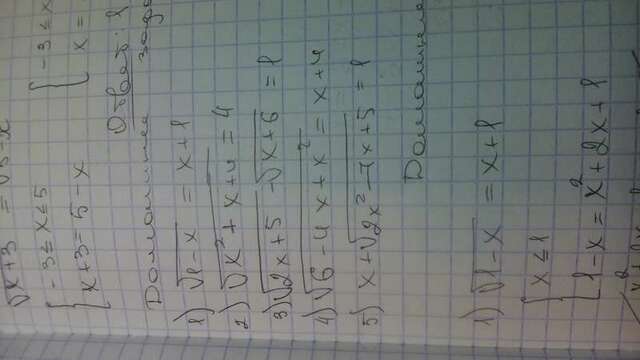 √x+3 = √5-x
{ -3 ≤ x ≤ 5
{ x+3 = 5-x
{ -3 ≤ x
{ x =
Ответ: 1
Домашнее
1) √1-x = x+1
2) √x²+x+4 = 4
3) √2x+5 - √x+6 = 1
4) √6-4x+x² = x+4
5) x+√2x²-7x+5 = 1
Домашнее
1) √1-x = x+1
{ x ≤ 1
{ 1-x = x²+2x+1